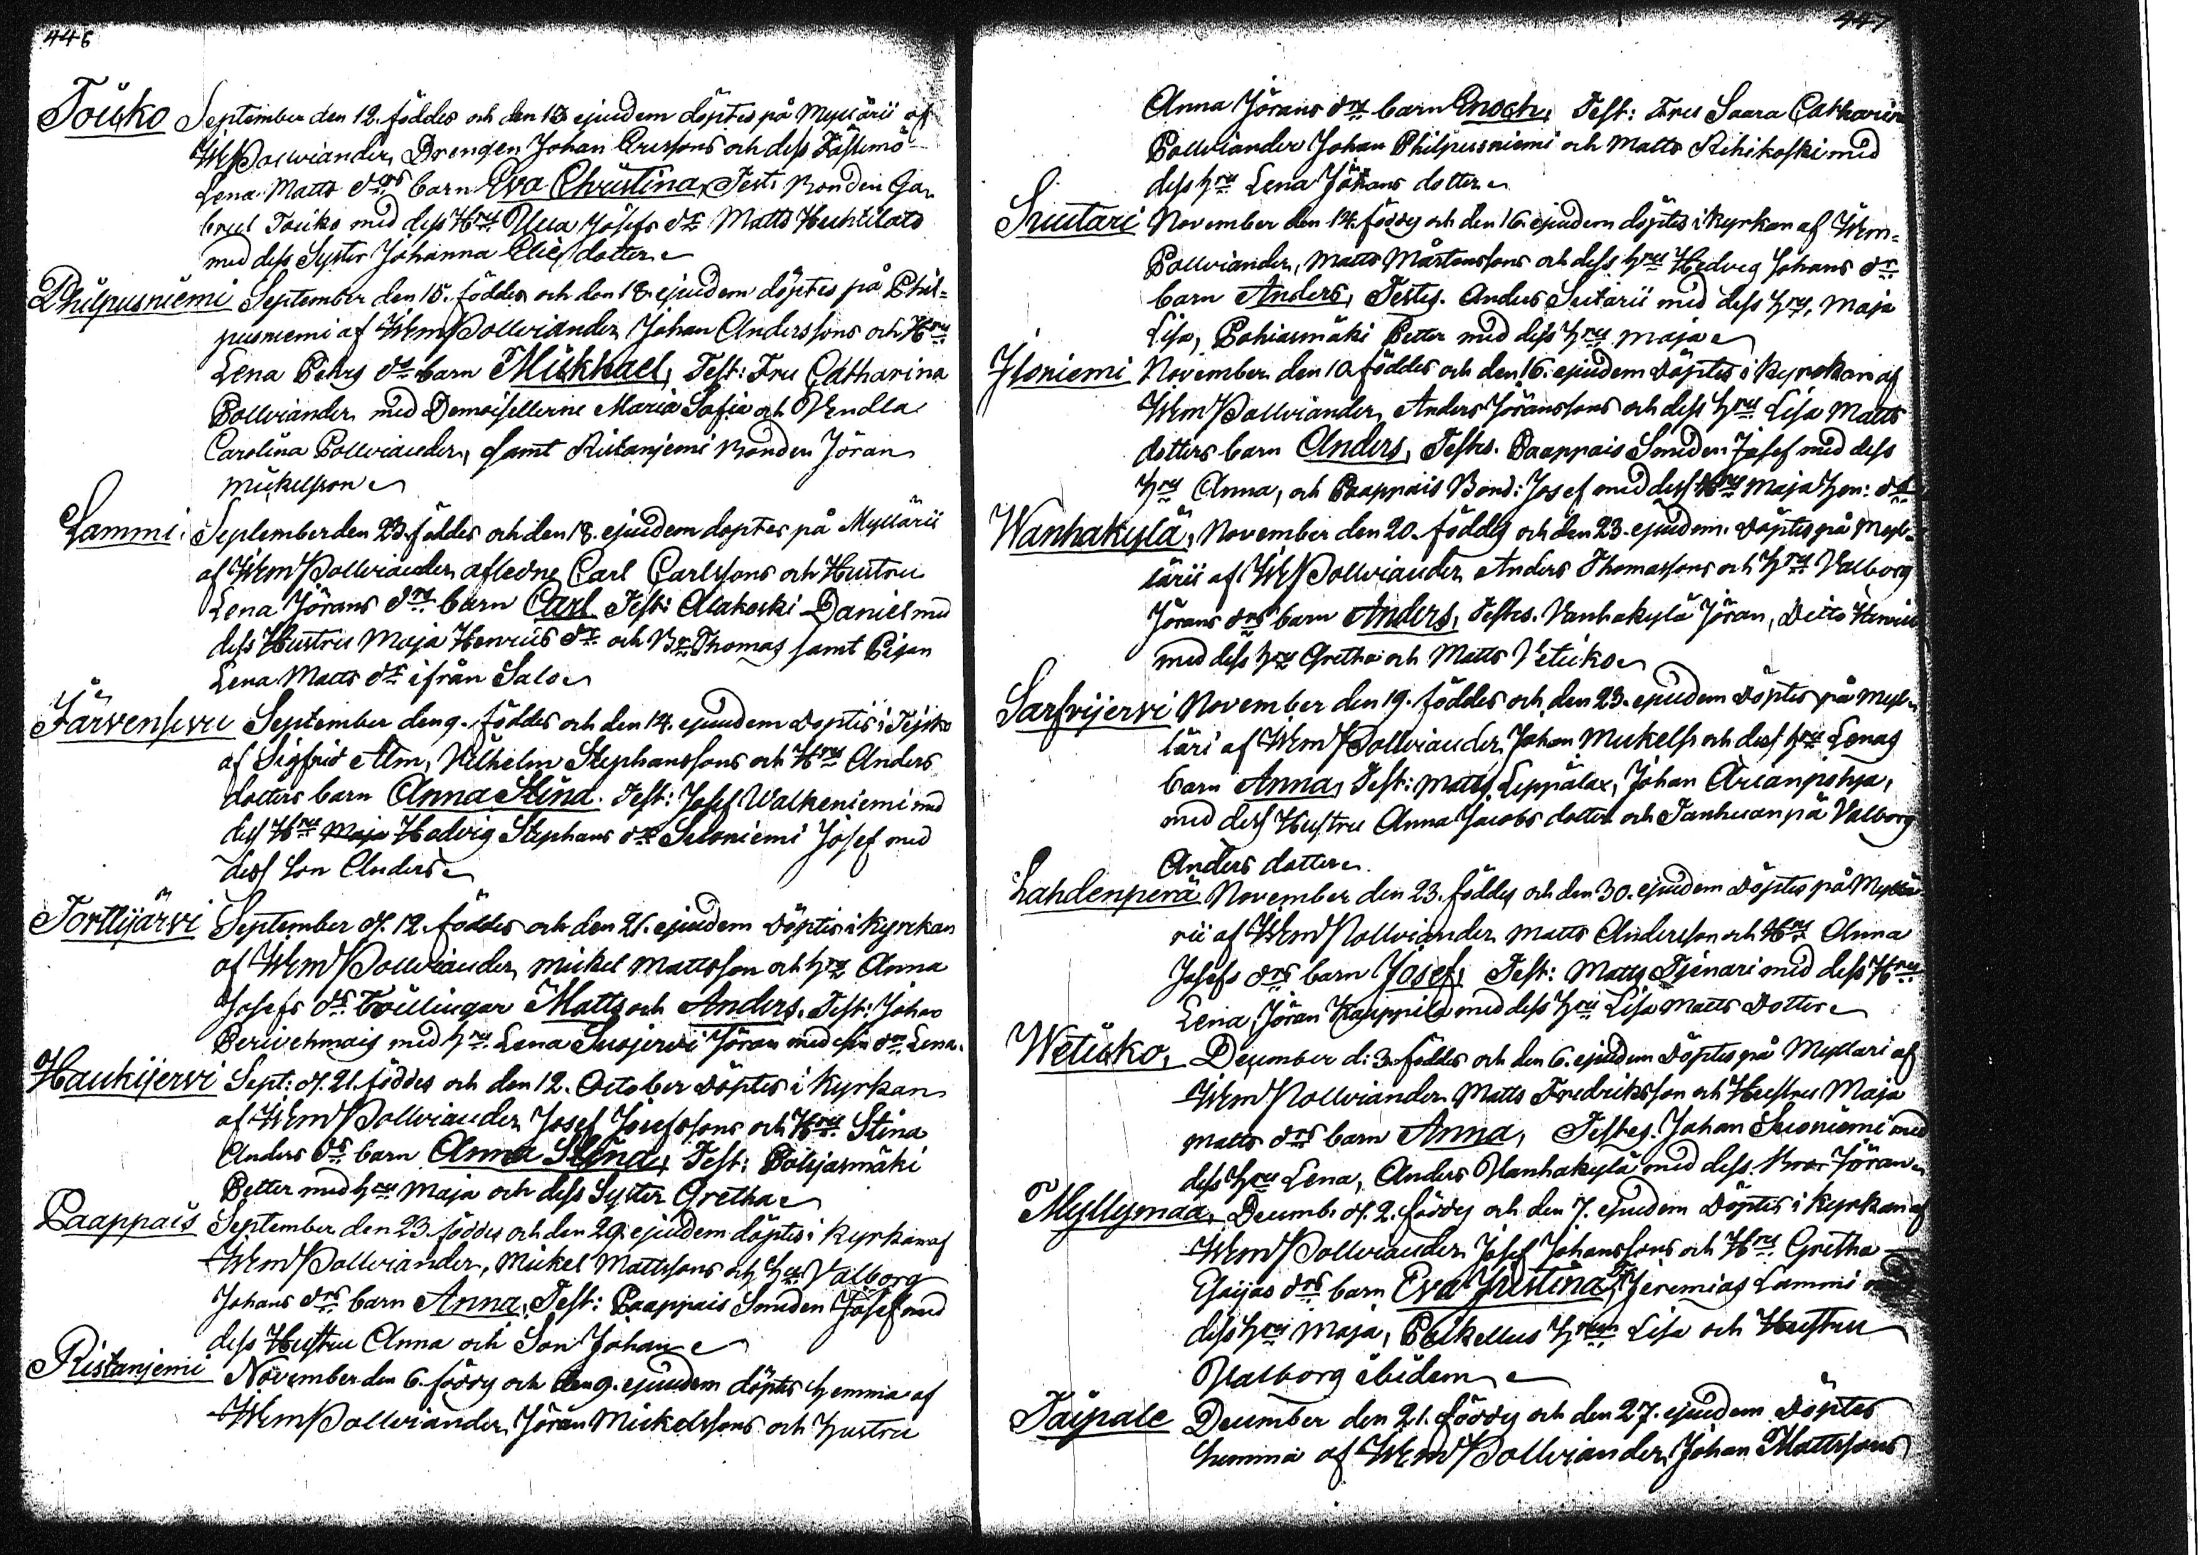 446
Touko September den 12. föddes och den 18 ejusdem döptes på Myllärii af
WmPollviander, Drengen Johan Ericssons och dess Fästemö
Lena Matts drs barn Eva Christina, Test: Bonden Ga-
briel Touko med dess Hru Ulla Josefs dr Matts Huhtilato
med dess Syster Johanna Elies dotter
Philpusniemi September den 15. föddes och den 18. ejusdem döptes på Phil=
pusniemi af WmPollviander, Johan Anderssons och Hru
Lena Pehrs drs barn Mickhael, Test: Fru Catharina
Pollviander med Demoisellerne Maria Sofia och Vendla
Carolina Pollviander, samt Ristanjemi Bonden Jöran
Mickelsson
Lammi. September den 23. föddes och den 18. ejusdem döptes på Myllärii
af WmPollviander afledne Carl Carlssons och Hustru
Lena Jörans drs barn Carl Test: Alakoski Daniel med
dess Hustru Maja Henrics dr och Br Thomas samt Pigan
Lena Matts dr ifrån Salo
Järvensivu September den 9. föddes och den 14. ejusdem döptes i Teisko
af Sigfrid Alm, Vilhelm Stephanssons och Hru Anders
dotters barn Anna Stina. Test: Josef Walkeniemi med
dess Hru Maja Hedvig Stephans dr Suloniemi Josef med
dess Son Anders
Torttijärvi September d. 12. föddes och den 21. ejusdem döptes i Kyrkan
af WmPollviander, Mickel Mattsson och Hru Anna
Josefs drs Tvillingar Matts och Anders. Test: Johan
Perivehmais med Hru Lena Suojervi Jöran med sin dr Lena.
Haukijervi Sept: d. 21. föddes och den 12. October döptes i Kyrkan
af WmPollviander Josef Josefssons och Hru Stina
Anders drs barn Anna Stina, Test: Pohjasmäki
Petter med Hru Maja och dess Syster Gretha
Paappais September den 23. föddes och den 29. ejusdem döptes i Kyrkan af
WmPollviander, Mickel Mattssons och Hru Valborg
Johans drs barn Anna, Test: Paappais Smeden Josef med
dess Hustru Anna och Son Johan
Ristanjemi November den 6. föddes och den 9. ejusdem döptes hemma af
WmPollviander, Jöran Mickelssons och hustru
447
Anna Jörans drs barn Enoch, Test: Fru Saara Catharina
Pollviander Johan Philpusniemi och Matts Rihikoski med
dess hru Lena Johans dotter
Suutari November den 14. föddes och den 16. ejusdem döptes i Kyrkan af Wm=
Pollviander, Matts Mårtenssons och dess hru Hedveg Johans drs
barn Anders, Testes. Anders Sutarii med dess hru, Maja
Lisa, Pohiasmäki Petter med dess hru Maja
Iloniemi November den 10. föddes och den 16. ejusdem döptes i Kyrckan af
WmPollviander, Anders Jöranssons och dess hru Lisa Matts
dotters barn Anders, Testes. Paappais Smeden Josef med dess
hru Anna, och Paappais Bond: Josef med dess Hru Maja Hen: dr
Wanhakylä, November den 20. föddes och den 23. ejusdem. döptes på Myl-
lärii af WmPollviander Anders Thomassons och Hru Valborg
Jörans drs barn Anders, Testes. Vanhakylä Jöran, Ditto Henric
med dess hru Gretha och Matts Vetiko
Sarfvijervi November den 19. föddes och den 23. ejusdem döptes på Myl-
läri af WmPollviander, Johan Mickelss och dess hru Lenas
barn Anna, Test: Matts Leppälax, Johan Arianpohja,
med dess Hustru Anna Jacobs dotter och Tanhuanpä Valborg
Anders dotter.
Lahdenperä November den 23. föddes och den 30. ejusdem döptes på Myllä
rii af WmPollviander Matts Andersson och Hru Anna
Josefs drs barn Josef, Test: Matts Tjenari med dess Hru
Lena, Jöran Kauppila med dess hru Lisa Matts dotter
Wetiko, December d: 3. föddes och den 6. ejusdem döptes på Myllari af
WmPollviander Matts Fredriksson och Hustru Maja
Matts drs barn Anna, Testes. Johan Suoniemi med
dess hru Lena, Anders Vanhakylä med dess Bror Jöran
Myllymaa, Decemb. d. 2. föddes och den 7. ejusdem döptes i Kyrkan af
WmPollviander Josef Johanssons och Hru Gretha
Esaijas drs barn Eva Justina, Jeremias Lammi
dess hru Maja, Lisa och Hustru
Valborg ibidem
Taipale December den 21. föddes och den 27. ejusdem döptes
hemma af WmPollviander, Johan Mattssons